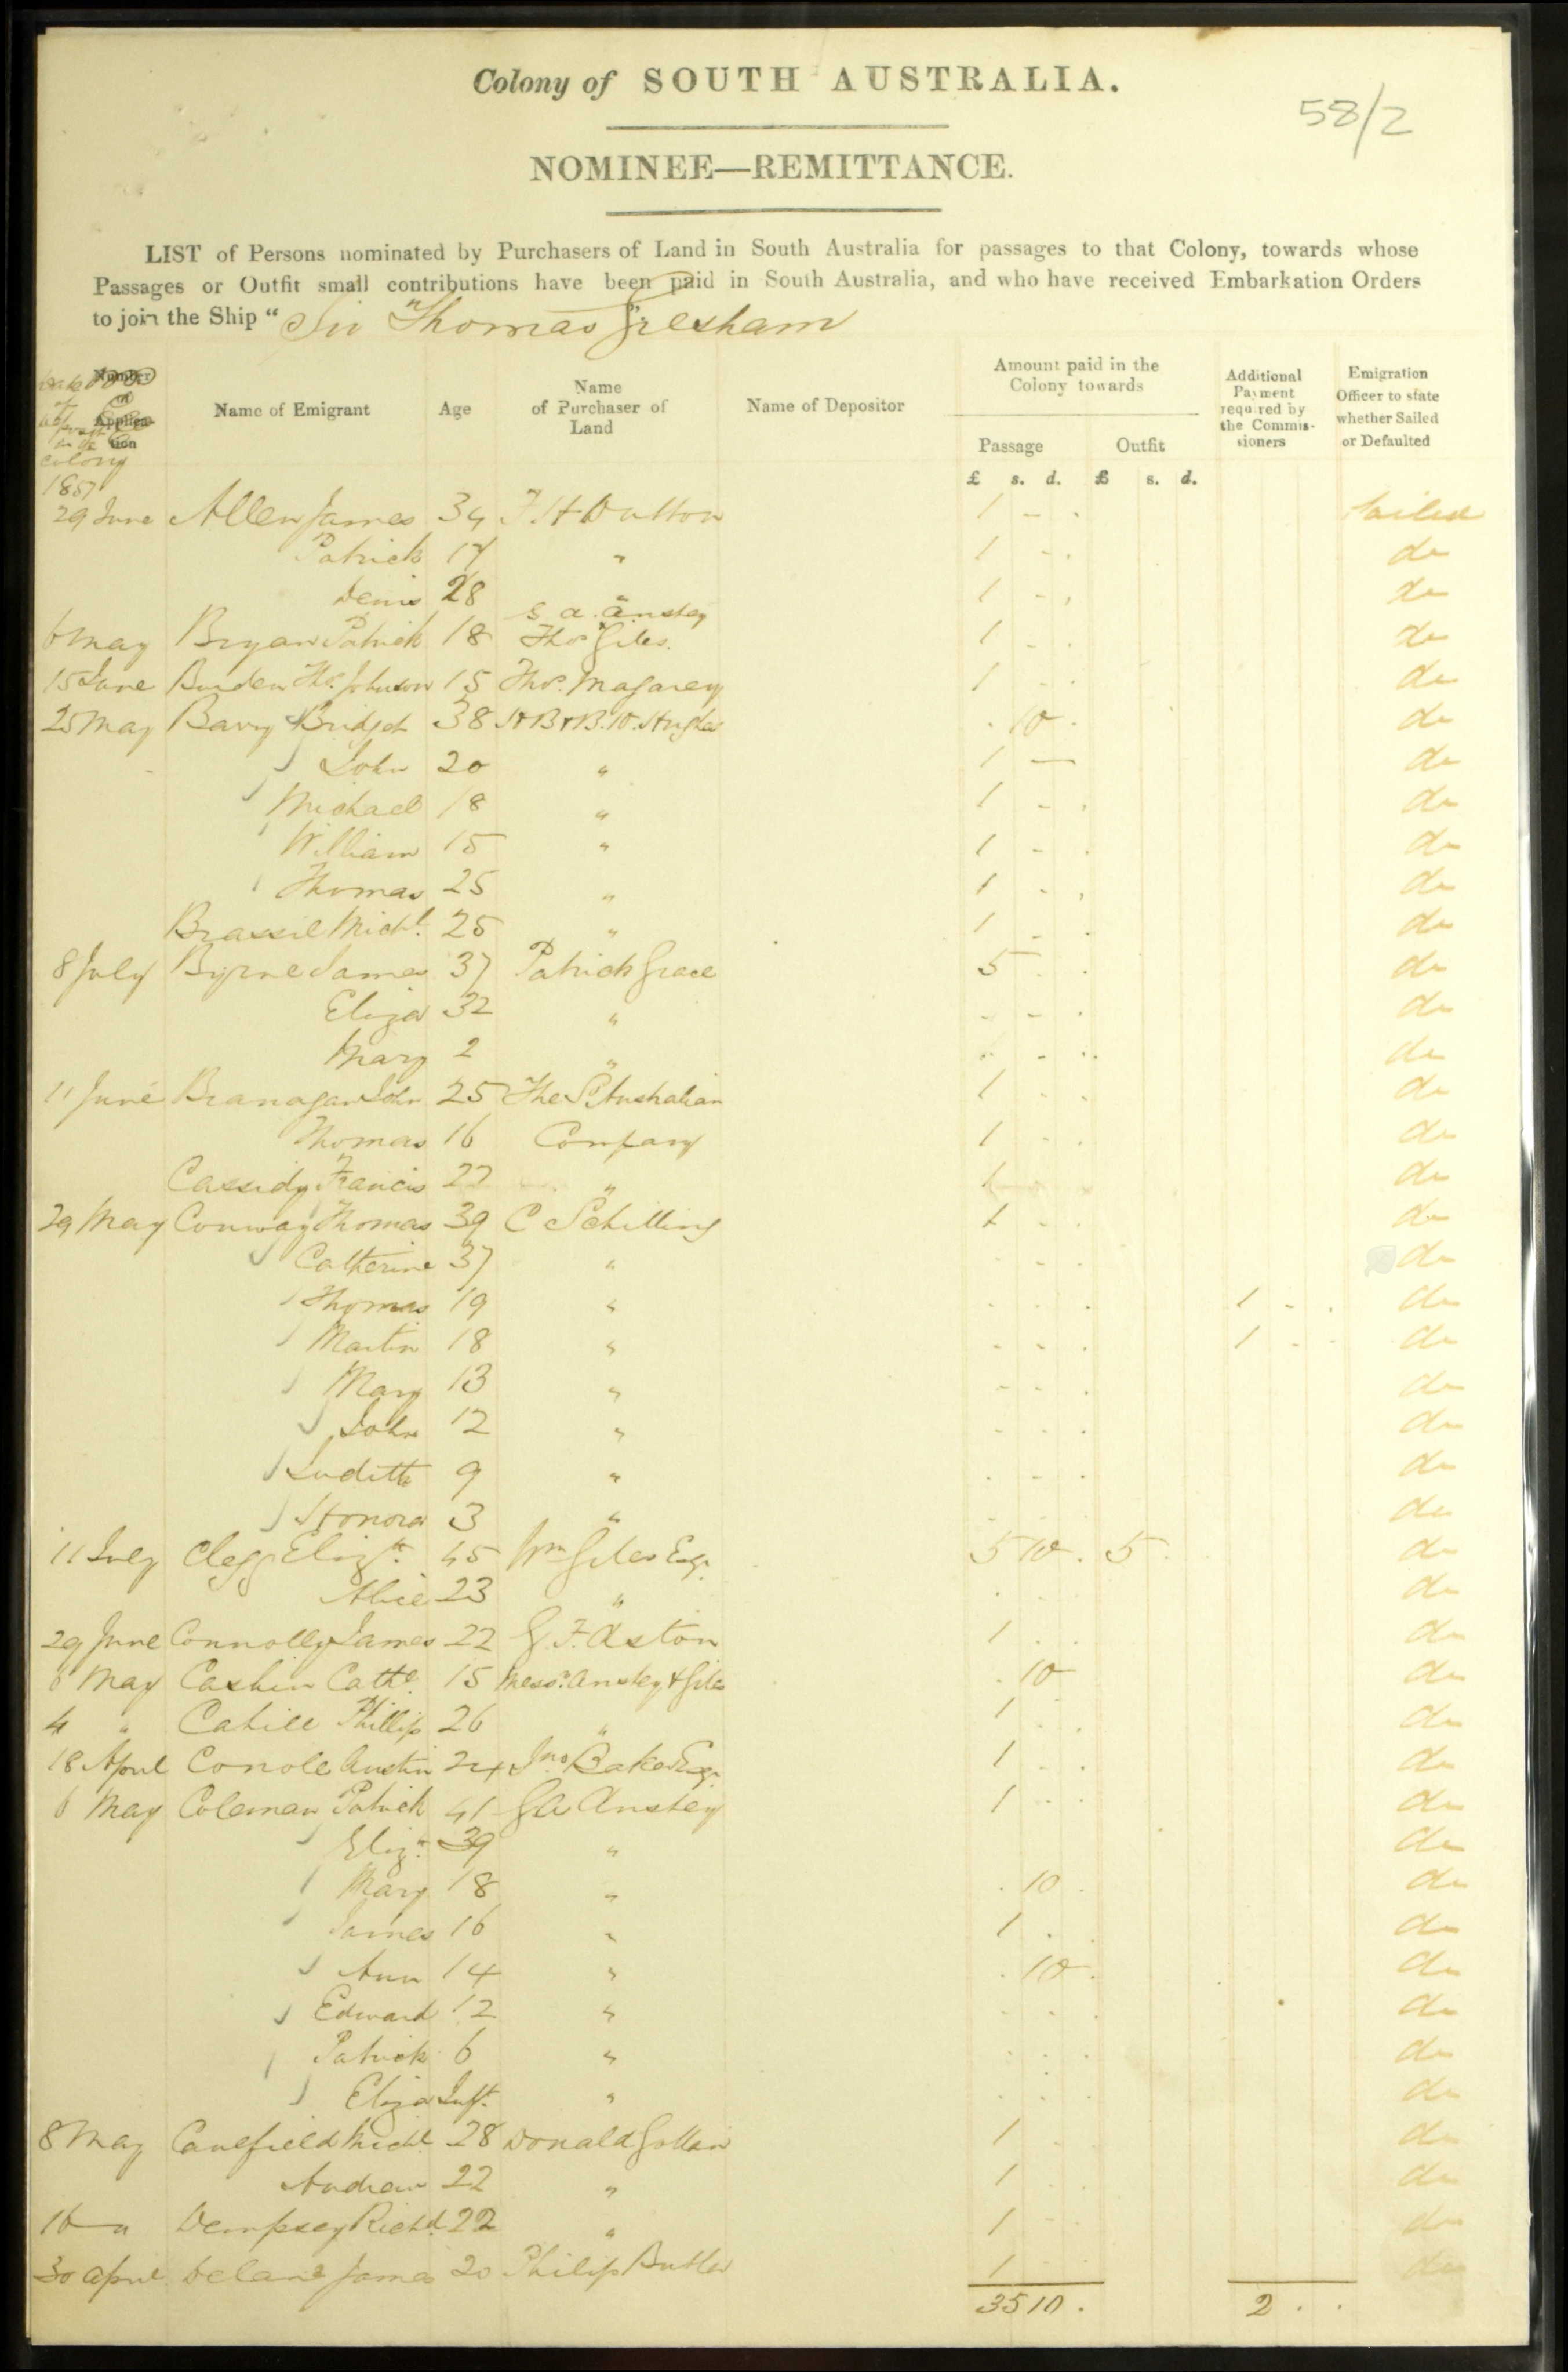 Colony of SOUTH AUSTRALIA.
58/2
NOMINEE—REMITTANCE.
LIST of Persons nominated by Purchasers of Land in South Australia for passages to that Colony, towards whose
Passages or Outfit small contributions have been paid in South Australia, and who have received Embarkation Orders
to join the Ship "Sir Thomas Gresham
Number of Application
colony
1857
Name of Emigrant
Age
Name of Purchaser of Land
Name of Depositor
Amount paid in the Colony towards
Passage
Outfit
Additional Payment required by the Commissioners
Emigration Officer to state whether Sailed or Defaulted
£ s. d. £ s. d.
29 June Allen James 34 F. H Dutton 1 - . Sailed
Patrick 17 " 1 - . do
Denis 28 " 1 - . do
G. A. Anstey
6 May Bryan Patrick 18 Thos Giles. 1 - . do
15 June Burden Thos. Johnson 15 Thos. Magarey 1 - . do
25 May Barry Bridget 38 H B & B. W. Hughes . 10 . do
John 20 " 1 — do
Michael 18 " 1 - . do
William 15 " 1 - . do
Thomas 25 " 1 - . do
Brassil Michl. 25 " 1 - . do
8 July Byrne James 37 Patrick Grace 5 . . do
Eliza 32 " - - . do
Mary 2 " . - . do
11 June Branagan John 25 The S. Australian 1 - . do
Thomas 16 Company 1 - . do
Cassidy Francis 22 " 1 do
29 May Conway Thomas 39 C Schilling 1 - . do
Catherine 37 " - - . do
Thomas 19 " . - . 1 - . do
Martin 18 " - - . 1 - - do
Mary 13 " - - . do
John 12 " - - . do
Judith 9 " . - . do
Honora 3 " . - . do
11 July Clegg Elizth. 45 Wm Giles Esqr. 5 10 . 5 . do
Alice 23 " . . . do
29 June Connolly James 22 G. F. Aston 1 . . do
6 May Cashin Cathe. 15 Messrs. Anstey & Giles . 10 do
4 " Cahill Phillip 26 " 1 . . do
18 April Conole Austin 24 Jno Baker Esqr. 1 . . do
6 May Coleman Patrick 41 G A Anstey 1 - . do
Elizh. 39 " do
Mary 18 " . 10 . do
James 16 " 1 . . do
Ann 14 " . 10 . do
Edward 12 " - - . do
Patrick 6 " . . . do
Eliza Inft. " . . . do
8 May Caulfield Michl. 28 Donald Gollan 1 . do
Andrew 22 " 1 . do
16 " Dempsey Richd. 22 " 1 - . do
30 April Delane James 20 Philip Butler 1 . do
35 10 . 2 . .